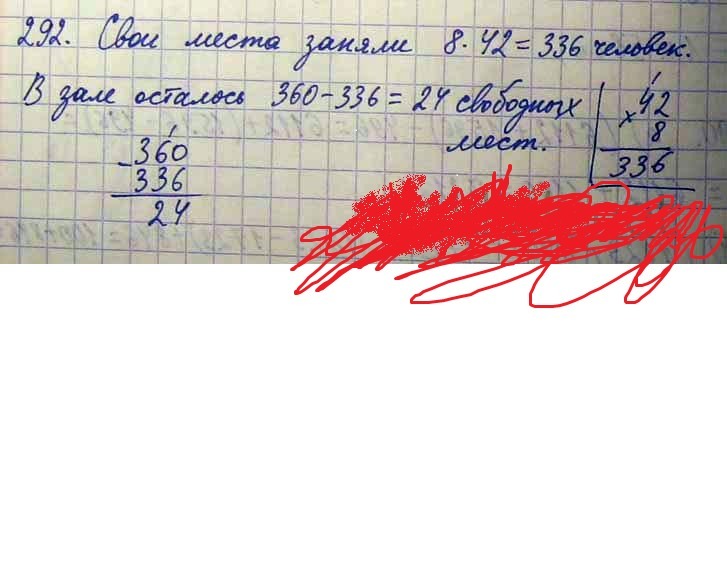 292. Свои места заняли 8·42=336 человек.
В зале осталось 360-336=24 свободных
мест.
1
42
× 8
336
360
- 336
24